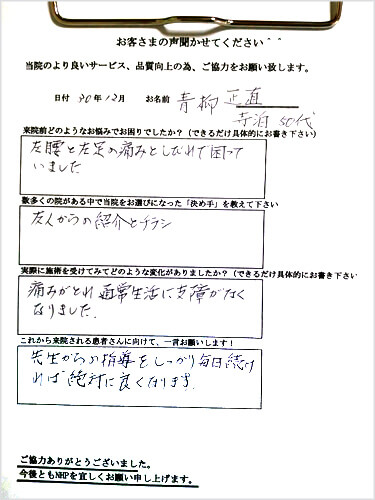 お客さまの声聞かせてください＾＾
当院のより良いサービス、品質向上の為、ご協力をお願い致します。
日付 30年12月 お名前 青柳 正直
寺泊 50代
来院前どのようなお悩みでお困りでしたか？（できるだけ具体的にお書き下さい）
左腰と左足の痛みとしびれで困って
いました
数多くの院がある中で当院をお選びになった「決め手」を教えて下さい
友人からの紹介とチラシ
実際に施術を受けてみてどのような変化がありましたか？（できるだけ具体的にお書き下さい
痛みがとれ通常生活に支障がなく
なりました.
これから来院される患者さんに向けて、一言お願いします！
先生からの指導をしっかり毎日続け
れば絶対に良くなります.
ご協力ありがとうございました。
今後ともNHPを宜しくお願い申し上げます。